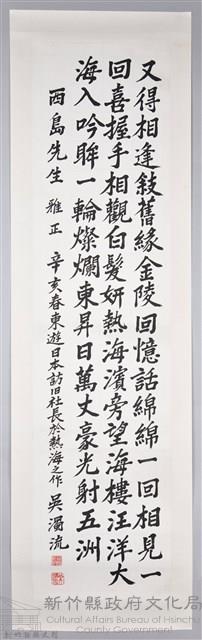 又得相逢敍舊緣金陵回憶話綿綿一回相見一
回喜握手相觀白髮妍熱海濱旁望海樓汪洋大
海入吟眸一輪燦爛東昇日萬丈豪光射五洲
西島先生 雅正 辛亥春東遊日本訪旧社長於熱海之作 吳濁流
新竹縣政府文化局
Cultural Affairs Bureau of Hsinchu
County Government